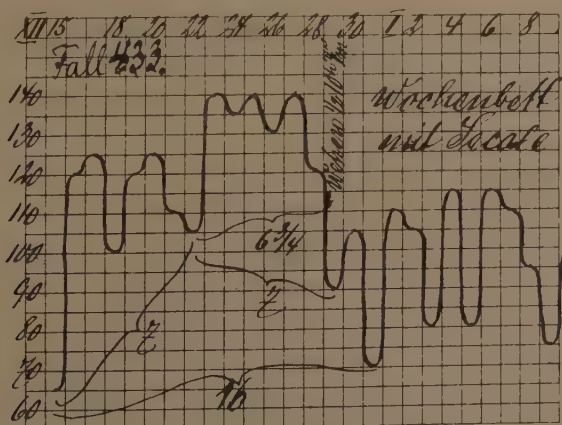 XII 15 18 20 22 24 26 28 30 I 2 4 6 8
Fall 433.
Wochenbett
mit Secale
140
130
120
110
100
90
80
70
60
6 3/4
7
7
16